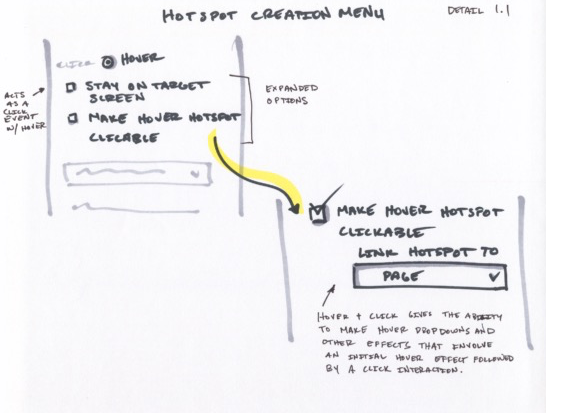 HOTSPOT CREATION MENU
DETAIL 1.1
CLICK HOVER
STAY ON TARGET
SCREEN
MAKE HOVER HOTSPOT
CLICKABLE
ACTS
AS A
CLICK
EVENT
W/ HOVER
EXPANDED
OPTIONS
MAKE HOVER HOTSPOT
CLICKABLE
LINK HOTSPOT TO
PAGE
HOVER + CLICK GIVES THE ABILITY
TO MAKE HOVER DROPDOWNS AND
OTHER EFFECTS THAT INVOLVE
AN INITIAL HOVER EFFECT FOLLOWED
BY A CLICK INTERACTION.